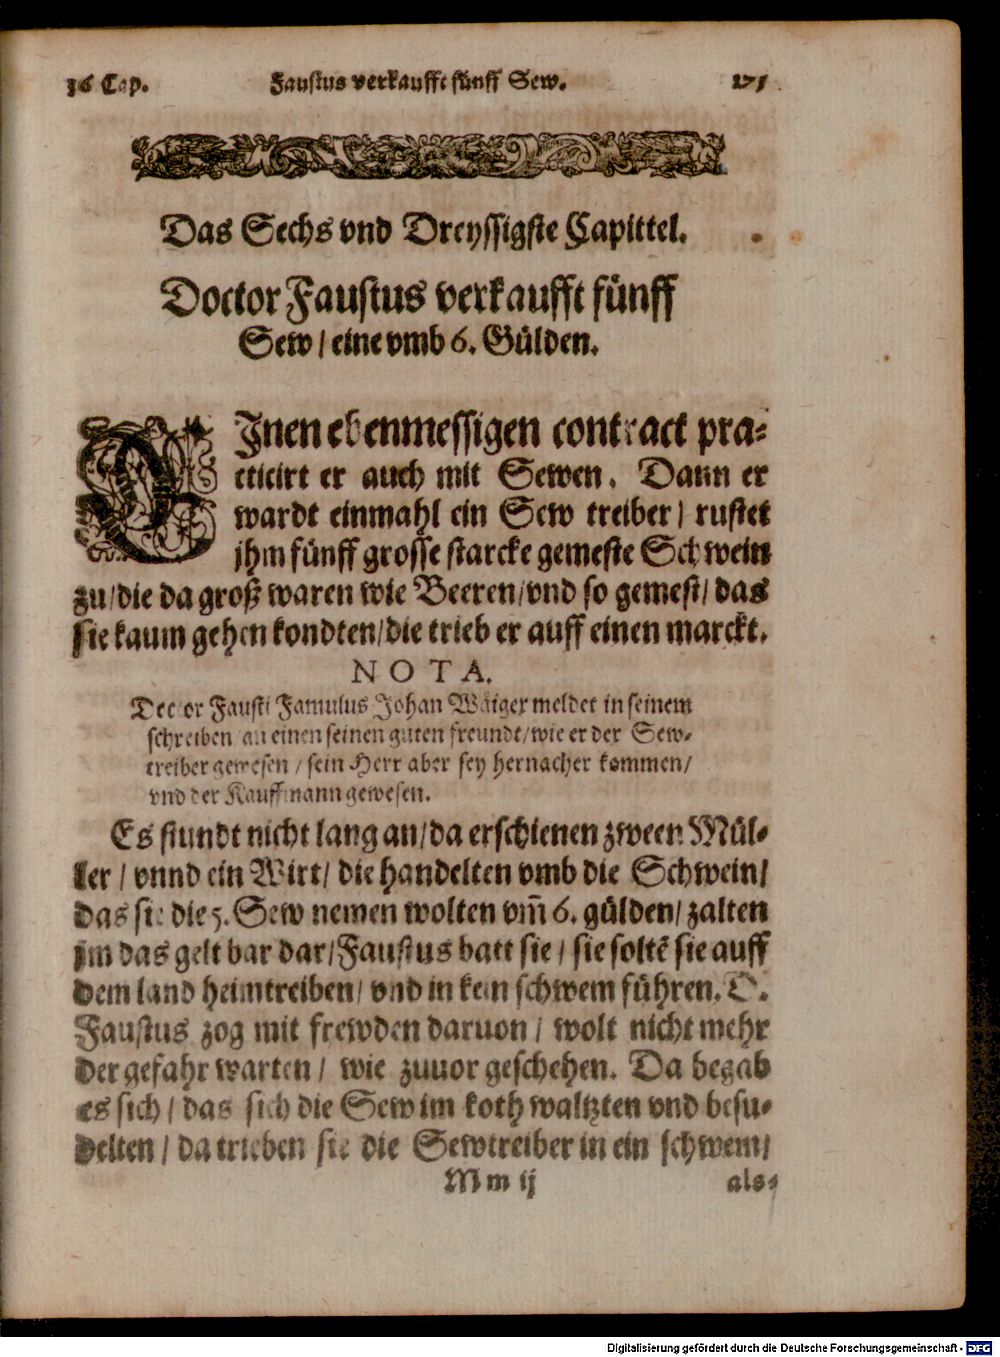 36 Cap. Faustus verkaufft fünff Sew. 275
Das Sechs vnd Dreyssigste Capittel.
Doctor Faustus verkaufft fünff
Sew / eine vmb 6. Gülden.
EJnen ebenmessigen contract pra-
cticirt er auch mit Sewen. Dann er
wardt einmahl ein Sew treiber / rustet
jhm fünff grosse starcke gemeste Schwein
zu / die da groß waren wie Beeren / vnd so gemest / das
sie kaum gehen kondten / die trieb er auff einen marckt.
NOTA.
Doctor Fausti Famulus Johan Wäiger meldet in seinem
schreiben an einen seinen guten freundt / wie er der Sew-
treiber gewesen / sein Herr aber sey hernacher kommen /
vnd der Kauffmann gewesen.
Es stundt nicht lang an / da erschienen zween Mül-
ler / vnnd ein Wirt / die handelten vmb die Schwein /
das sie die 5. Sew nemen wolten vm̃ 6. gülden / zalten
jm das gelt bar dar / Faustus batt sie / sie soltẽ sie auff
dem land heimtreiben / vnd in kein schwem führen. D.
Faustus zog mit frewden daruon / wolt nicht mehr
der gefahr warten / wie zuuor geschehen. Da begab
es sich / das sich die Sew im koth waltzten vnd besu-
delten / da trieben sie die Sewtreiber in ein schwem /
Mm ij als-
Digitalisierung gefördert durch die Deutsche Forschungsgemeinschaft - DFG